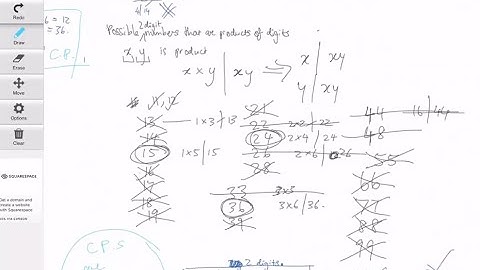 Redo
Draw
Erase
Move
Options
Clear
SQUARESPACE
Get a domain and create a website with Squarespace
= 12
= 36.
C.P.
Possible 2 digit numbers that are products of digits
x y is product
x × y | xy ⟹ x | xy
y | xy
11, 12
13 1×3 | 13
14
15 1×5 | 15
16
17
18
19
21
22 2×2 | 22
24 2×4 | 24
26 2×6 | 26
28
33 3×3
36 3×6 | 36.
39
44 16 | 44
48
55
66
77
88
99
C.P.S
2 digits.